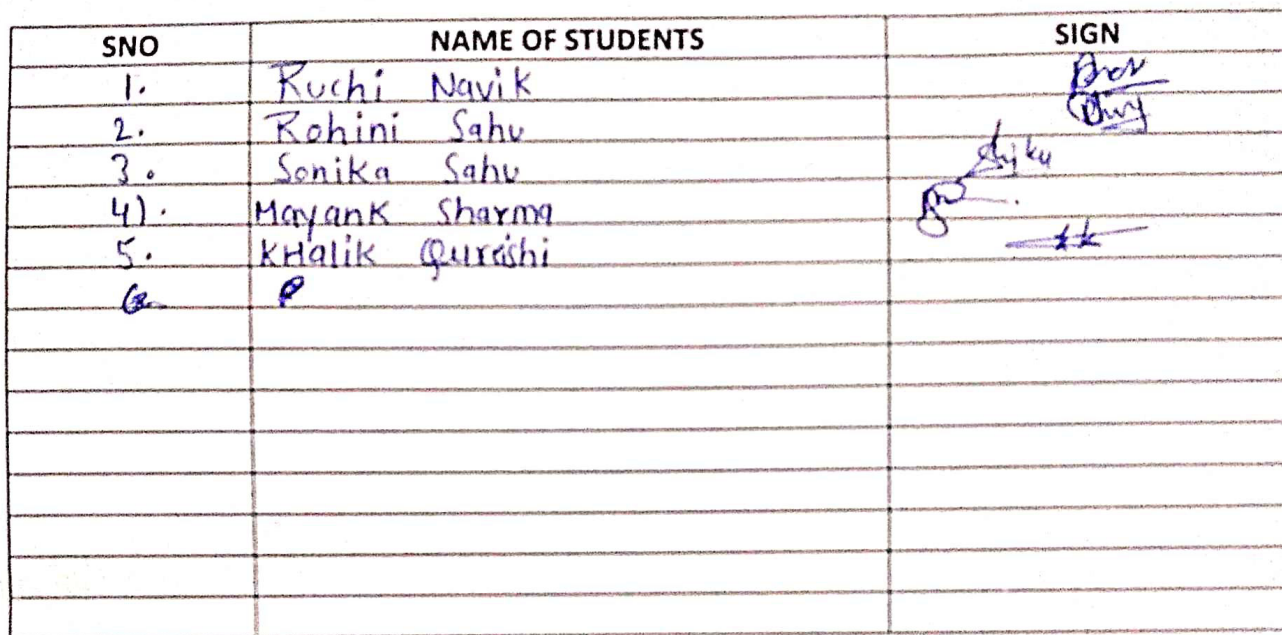 SNO NAME OF STUDENTS SIGN
1. Ruchi Navik
2. Rohini Sahu
3. Sonika Sahu
4). Mayank Sharma
5. KHalik Qureshi